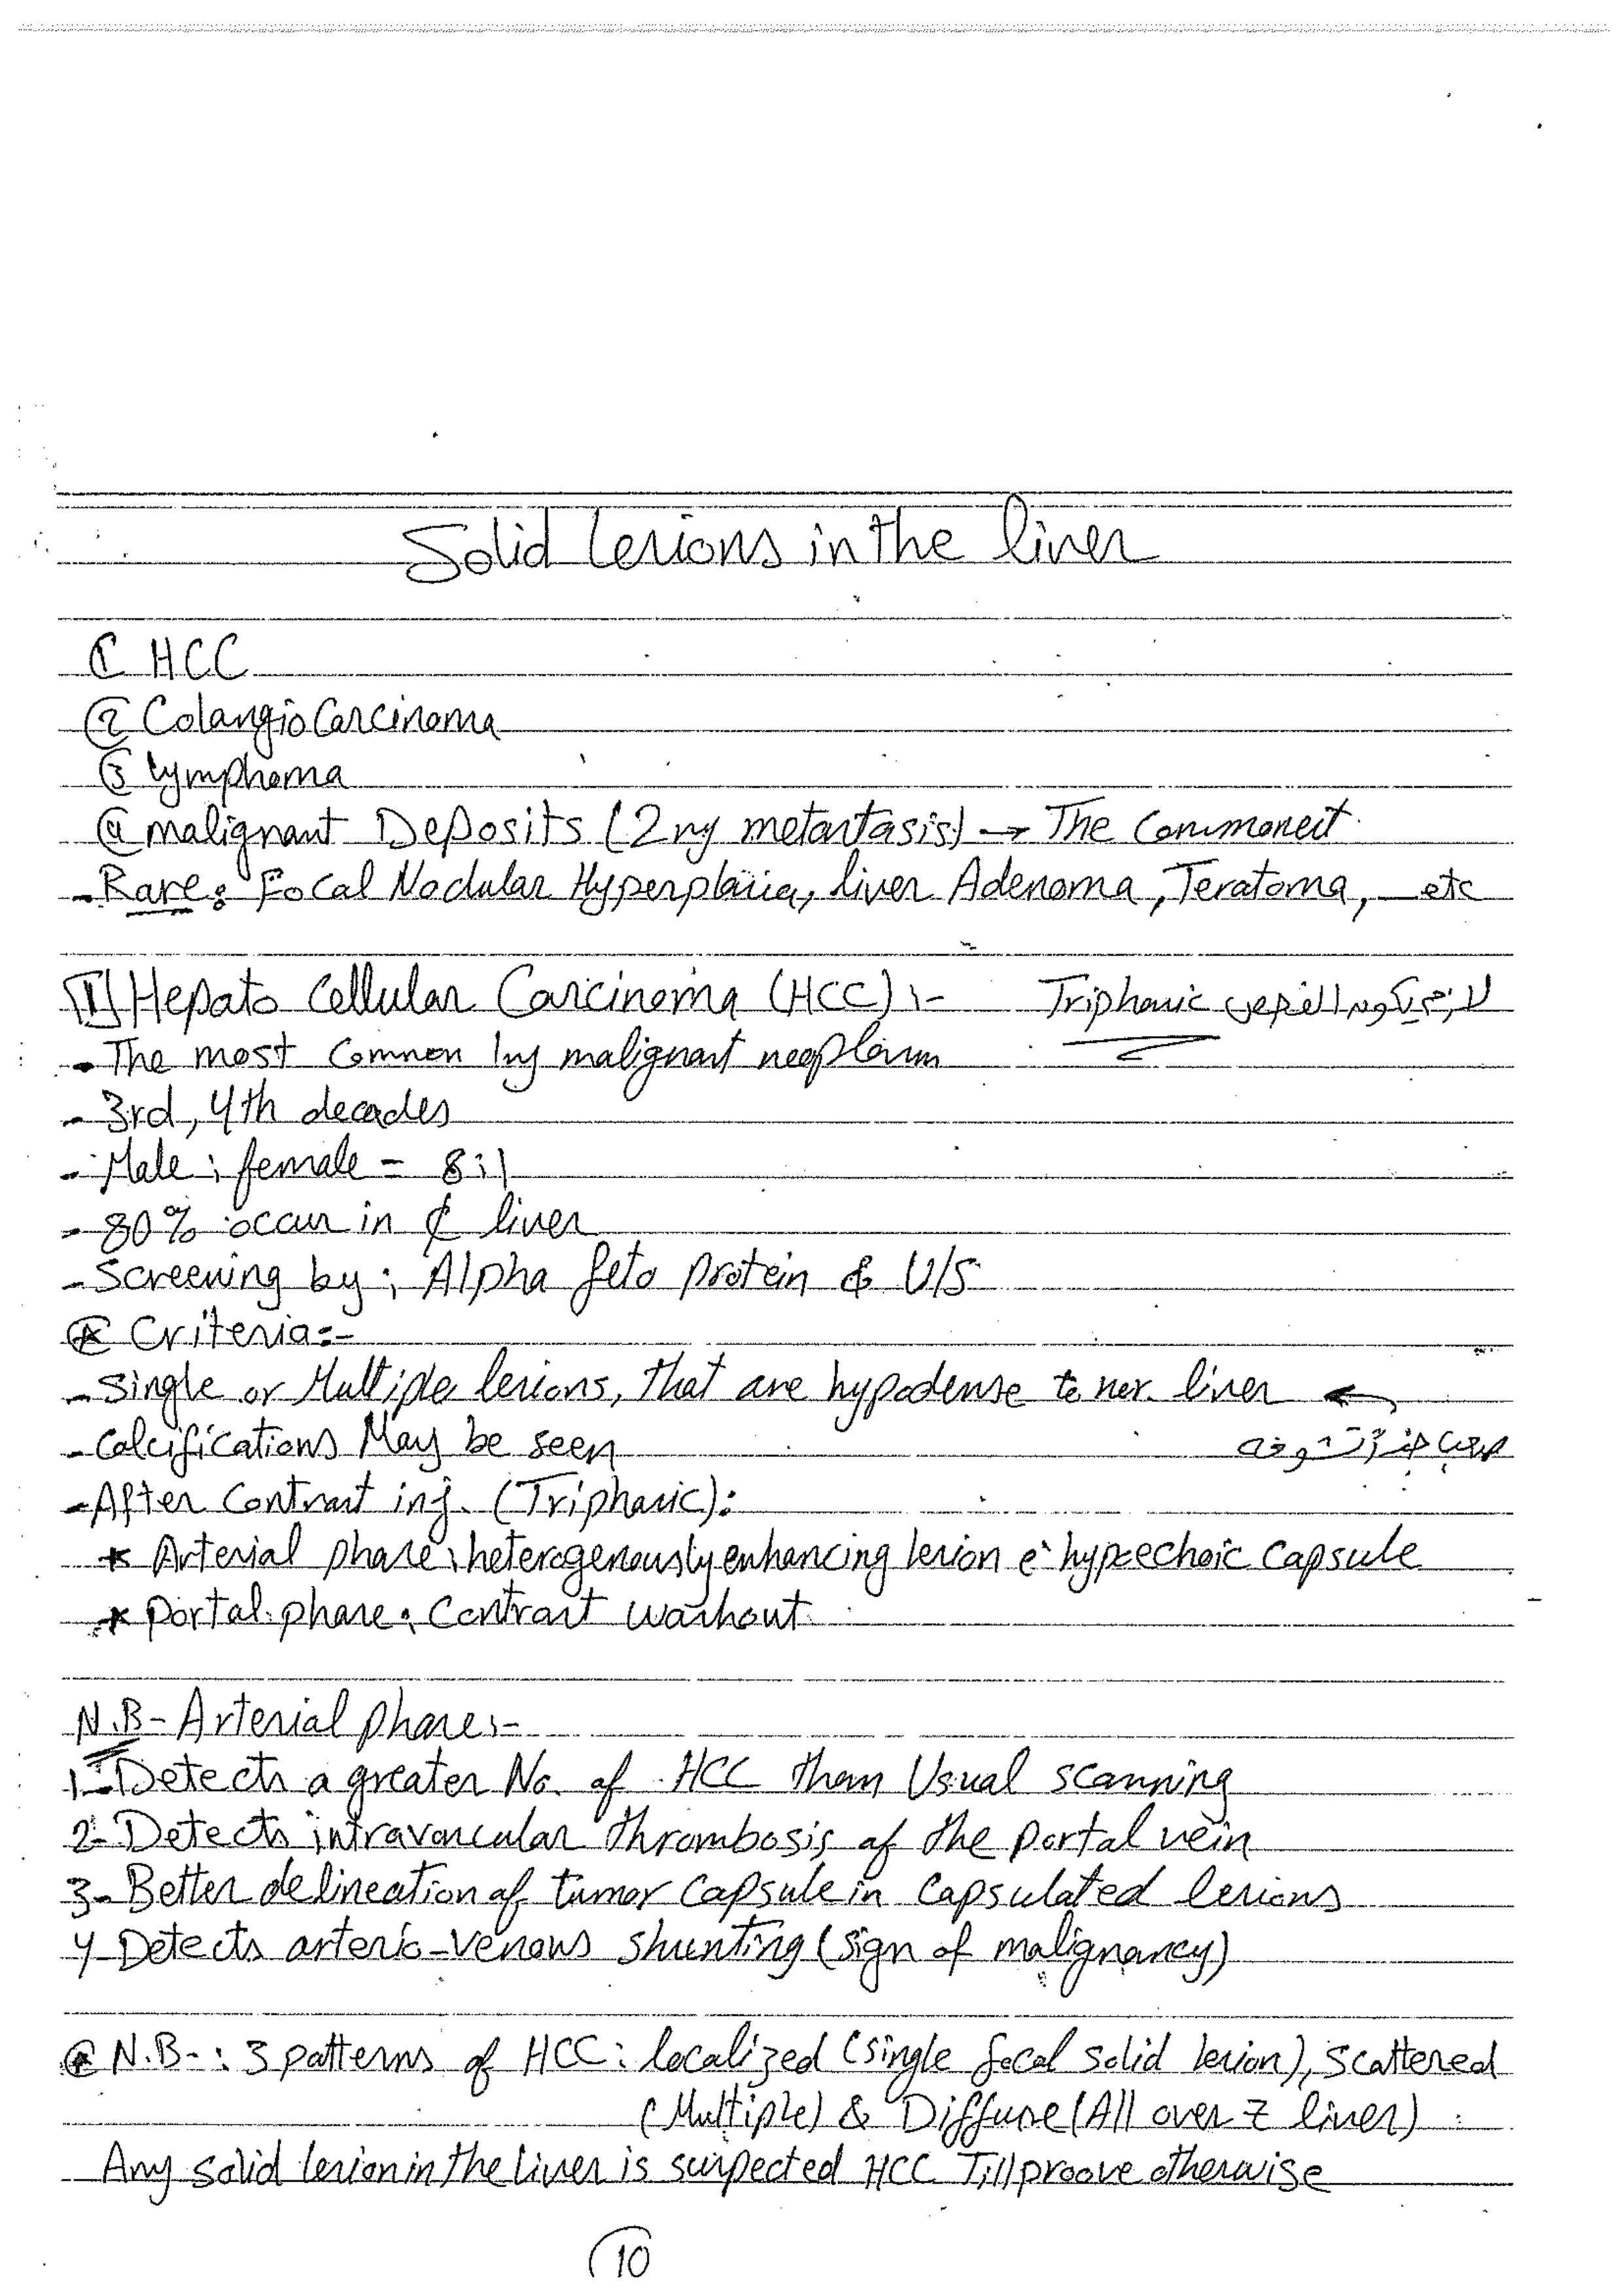 Solid lesions in the liver
① HCC
② Colangiocarcinoma
③ lymphoma
④ malignant Deposits (2ry metastasis) → The Commonest
- Rare: Focal Nodular Hyperplasia, liver Adenoma, Teratoma, — etc
[1] Hepato Cellular Carcinoma (HCC) :- لازم يكون الفحص Triphasic
- The most common 1ry malignant neoplasm
- 3rd, 4th decades
- Male : female = 8:1
- 80% occur in ₵ liver
- Screening by: Alpha feto protein & U/S
* Criteria:-
- Single or Multiple lesions, that are hypodense to nor. liver ←
- Calcifications May be seen
- After Contrast inj. (Triphasic):
* Arterial phase: heterogenously enhancing lesion e` hypoechoic capsule
* Portal phase: Contrast washout
N.B- Arterial phase:-
1- Detects a greater No. of HCC than Usual scanning
2- Detects intravascular thrombosis of the portal vein
3- Better delineation of tumor capsule in capsulated lesions
4 Detects arterio-venous shunting (sign of malignancy)
* N.B-: 3 patterns of HCC: localized (single focal solid lesion), Scattered
(Multiple) & Diffuse (All over Z liver)
Any solid lesion in the liver is suspected HCC Till proove otherwise
10